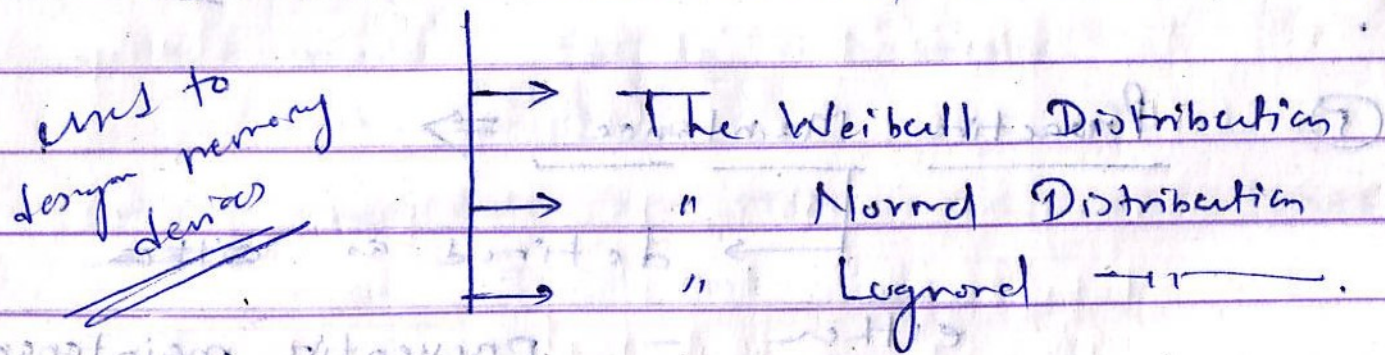 uses to
design memory
devices
→ The Weibull Distribution
→ " Normal Distribution
→ " Lognormal —— " ——.